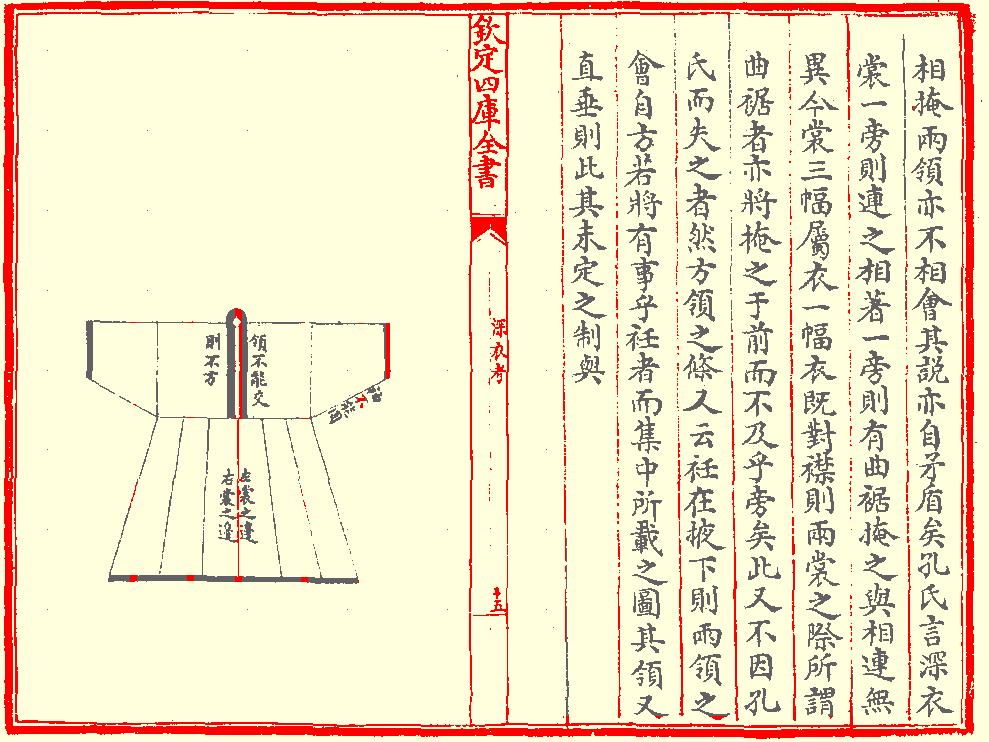 相掩兩領亦不相會其説亦自矛盾矣孔氏言深衣
裳一旁則連之相著一旁則有曲裾掩之與相連無
異今裳三幅屬衣一幅衣既對襟則兩裳之際所謂
曲裾者亦將掩之于前而不及乎旁矣此又不因孔
氏而失之者然方領之條又云衽在掖下則兩領之
會自方若將有事乎衽者而集中所載之圖其領又
直垂則此其未定之制與
欽定四庫全書
深衣考
十五
領不能交
則不方
不能圓
左裳之邊
右裳之邊